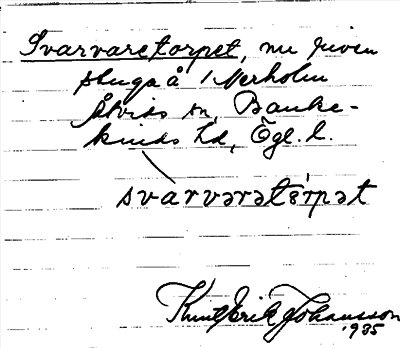 Svarvaretorpet, nu riven
stuga å Nerholm
Åtvids sn, Banke-
kinds hd, Ögl. l.
svarvarətərpət
Knut Erik Johansson
1935